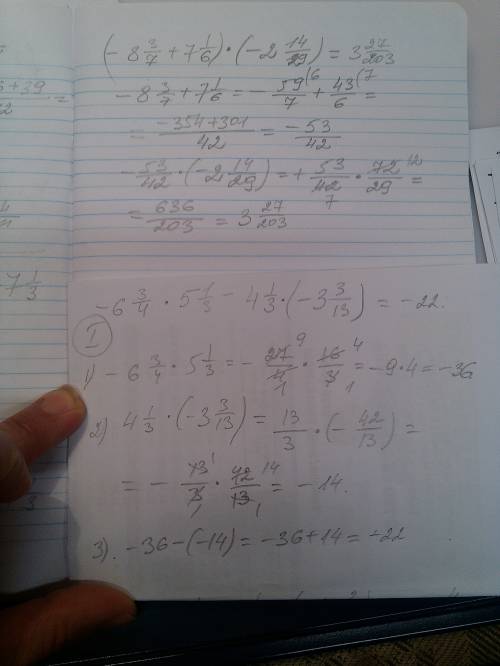 (- 8 3/7 + 7 1/6) · (-2 14/29) = 3 27/203
- 8 3/7 + 7 1/6 = - 59/7 (6 + 43/6 (7 =
= -354+301/42 = -53/42
- 53/42 · (-2 14/29) = + 53/42 7 · 72/29 12 =
= 636/203 = 3 27/203
7 1/3
-6 3/4 · 5 1/3 - 4 1/3 · (-3 3/13) = -22.
I
1) -6 3/4 · 5 1/3 = - 27/4 9 1 · 16/3 4 1 = -9·4 = -36
2) 4 1/3 · (-3 3/13) = 13/3 · (- 42/13) =
= - 13/3 1 1 · 42/13 14 1 = -14.
3). -36-(-14) = -36+14 = -22